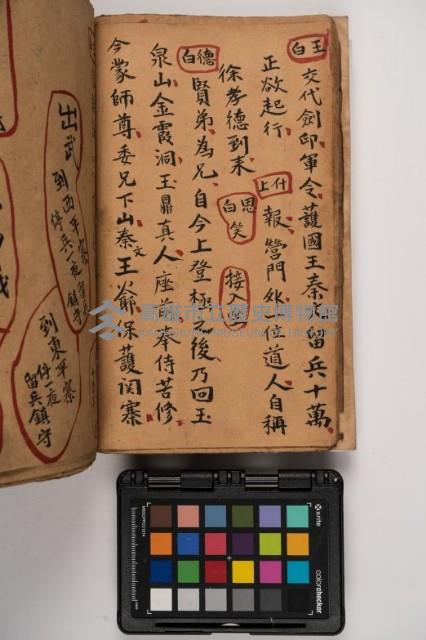 王白 交代劍印軍令、護國王秦 留兵十萬、
正欲起行、 什上 報、營門外一位道人自稱
徐孝德到來、 思笑白 接入
德白 賢弟、為兄、自今上登極之後、乃回玉
泉山、金霞洞、玉鼎真人、座前奉侍苦修
今蒙師尊、委兄下山、秦文王爺、保護関寨
出武
到西平寨
停兵一夜
留兵鎮守
到東平寨
停一夜
留兵鎮守
高雄市立歷史博物館
x-rite
colorchecker